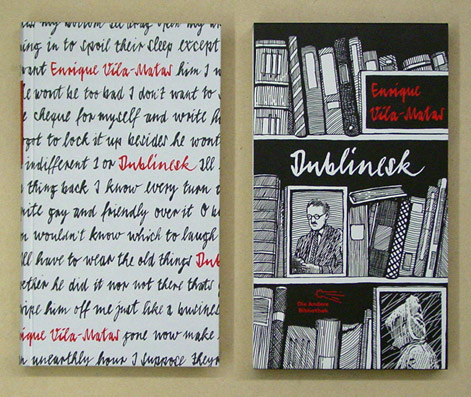 my bottom all
ing in to spoil their sleep except
want Enrique Vila-Matas him I w
e wont be too bad I don't want to
e cheque for myself and write h
got to lock it up besides he wont
indifferent 1 or Dublinesk all
thing back I know every turn t
nite gay and friendly over it O
n wouldn't know which to laugh
ll have to wear the old things Dub
ether he did it nor not there thats
wipe him off me just like a busines
rique Vila-Matas gone now make
n unearthly hour I suppose theyr
Enrique
Vila-Matas
Dublinesk
Die Andere
Bibliothek